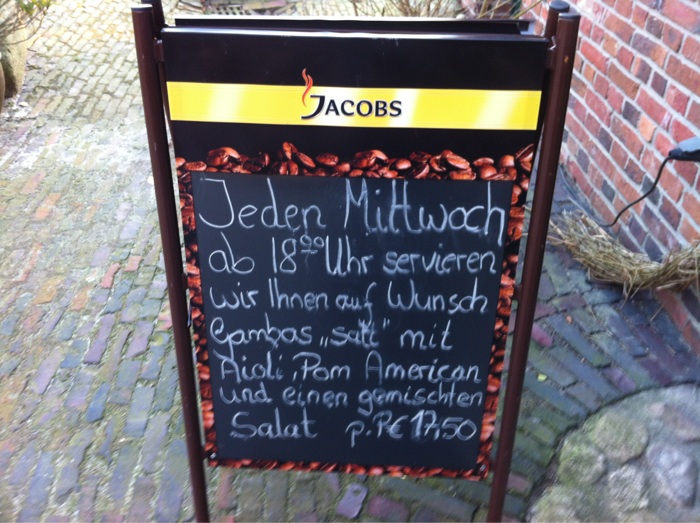 JACOBS
Jeden Mittwoch
ab 18⁰⁰ Uhr servieren
wir Ihnen auf Wunsch
Gambas „satt" mit
Aioli, Pom American
und einen gemischten
Salat p.P.€ 17,50